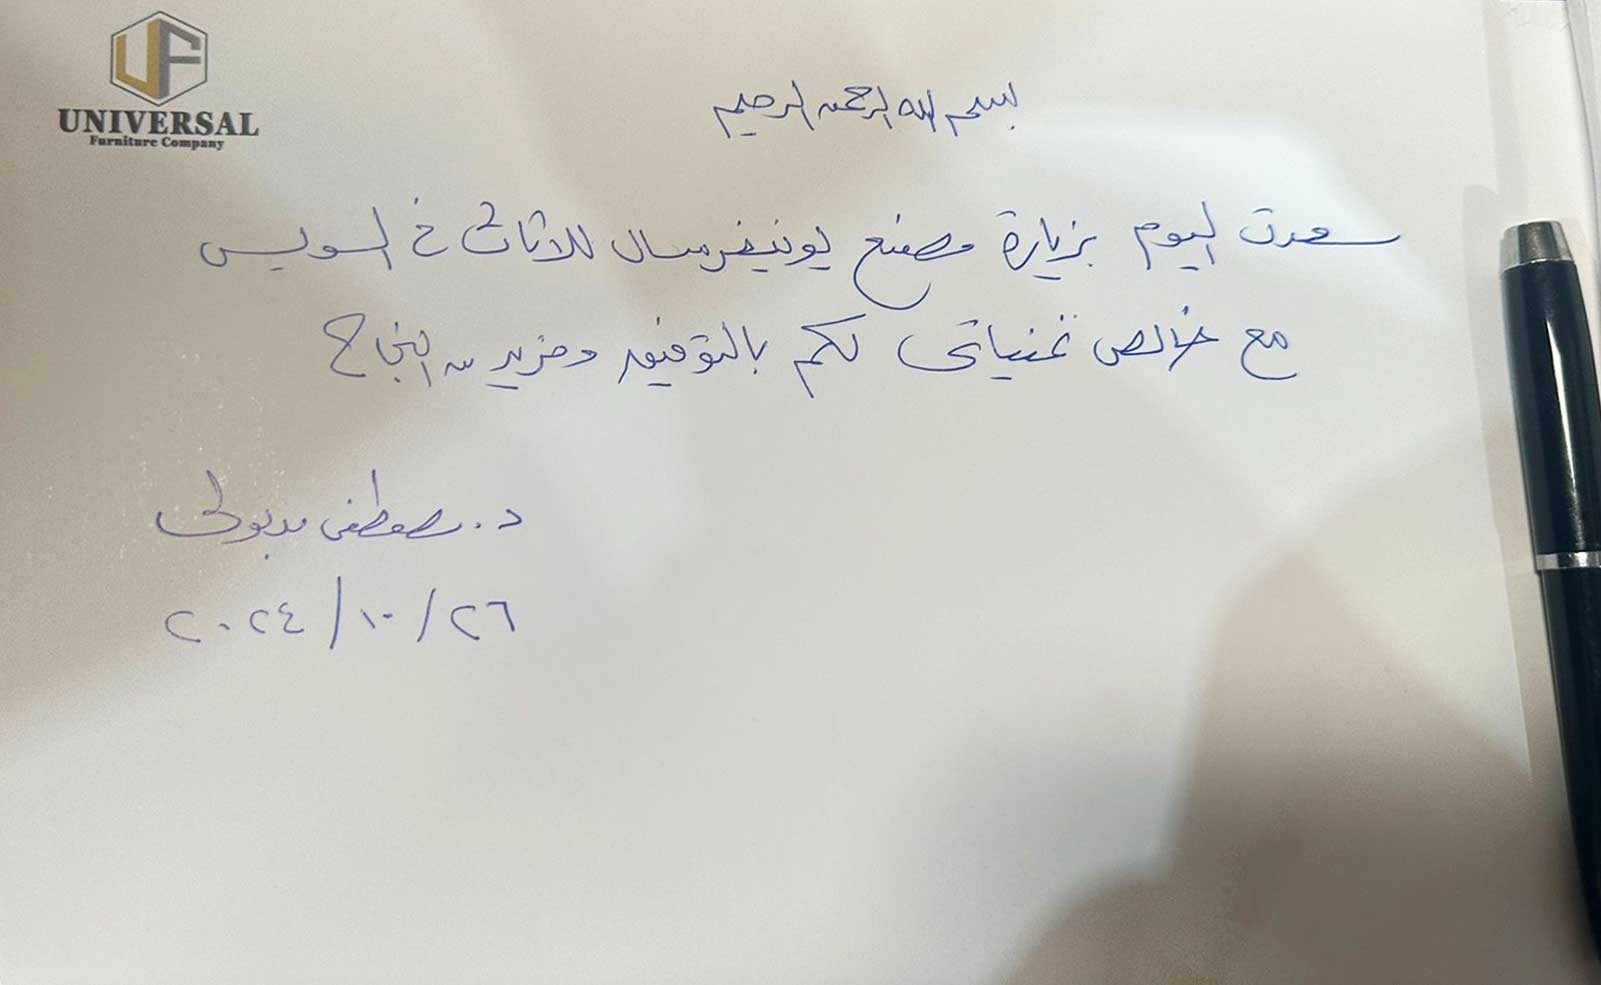 UNIVERSAL
Furniture Company
بسم الله الرحمن الرحيم
سعدت اليوم بزيارة مصنع يونيفرسال للأثاث في السويس
مع خالص تمنياتى لكم بالتوفيق ومزيد من النجاح
د. مصطفى مدبولى
٢٦/١٠/٢٠٢٤